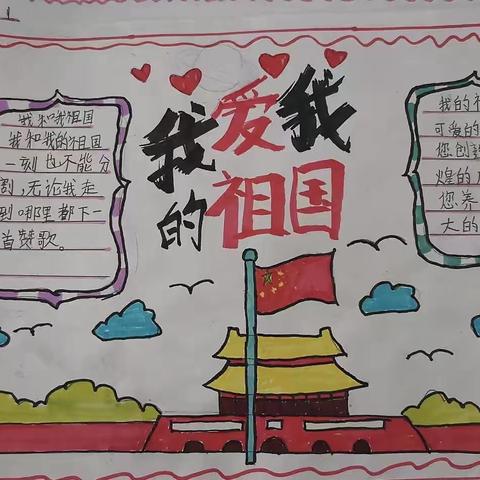 我爱我
的祖国
我和我祖国
我和我的祖国
一刻也不能分
割，无论我走
到哪里都下一
首赞歌。
我的祖
可爱的
您创
煌的
您养
大的